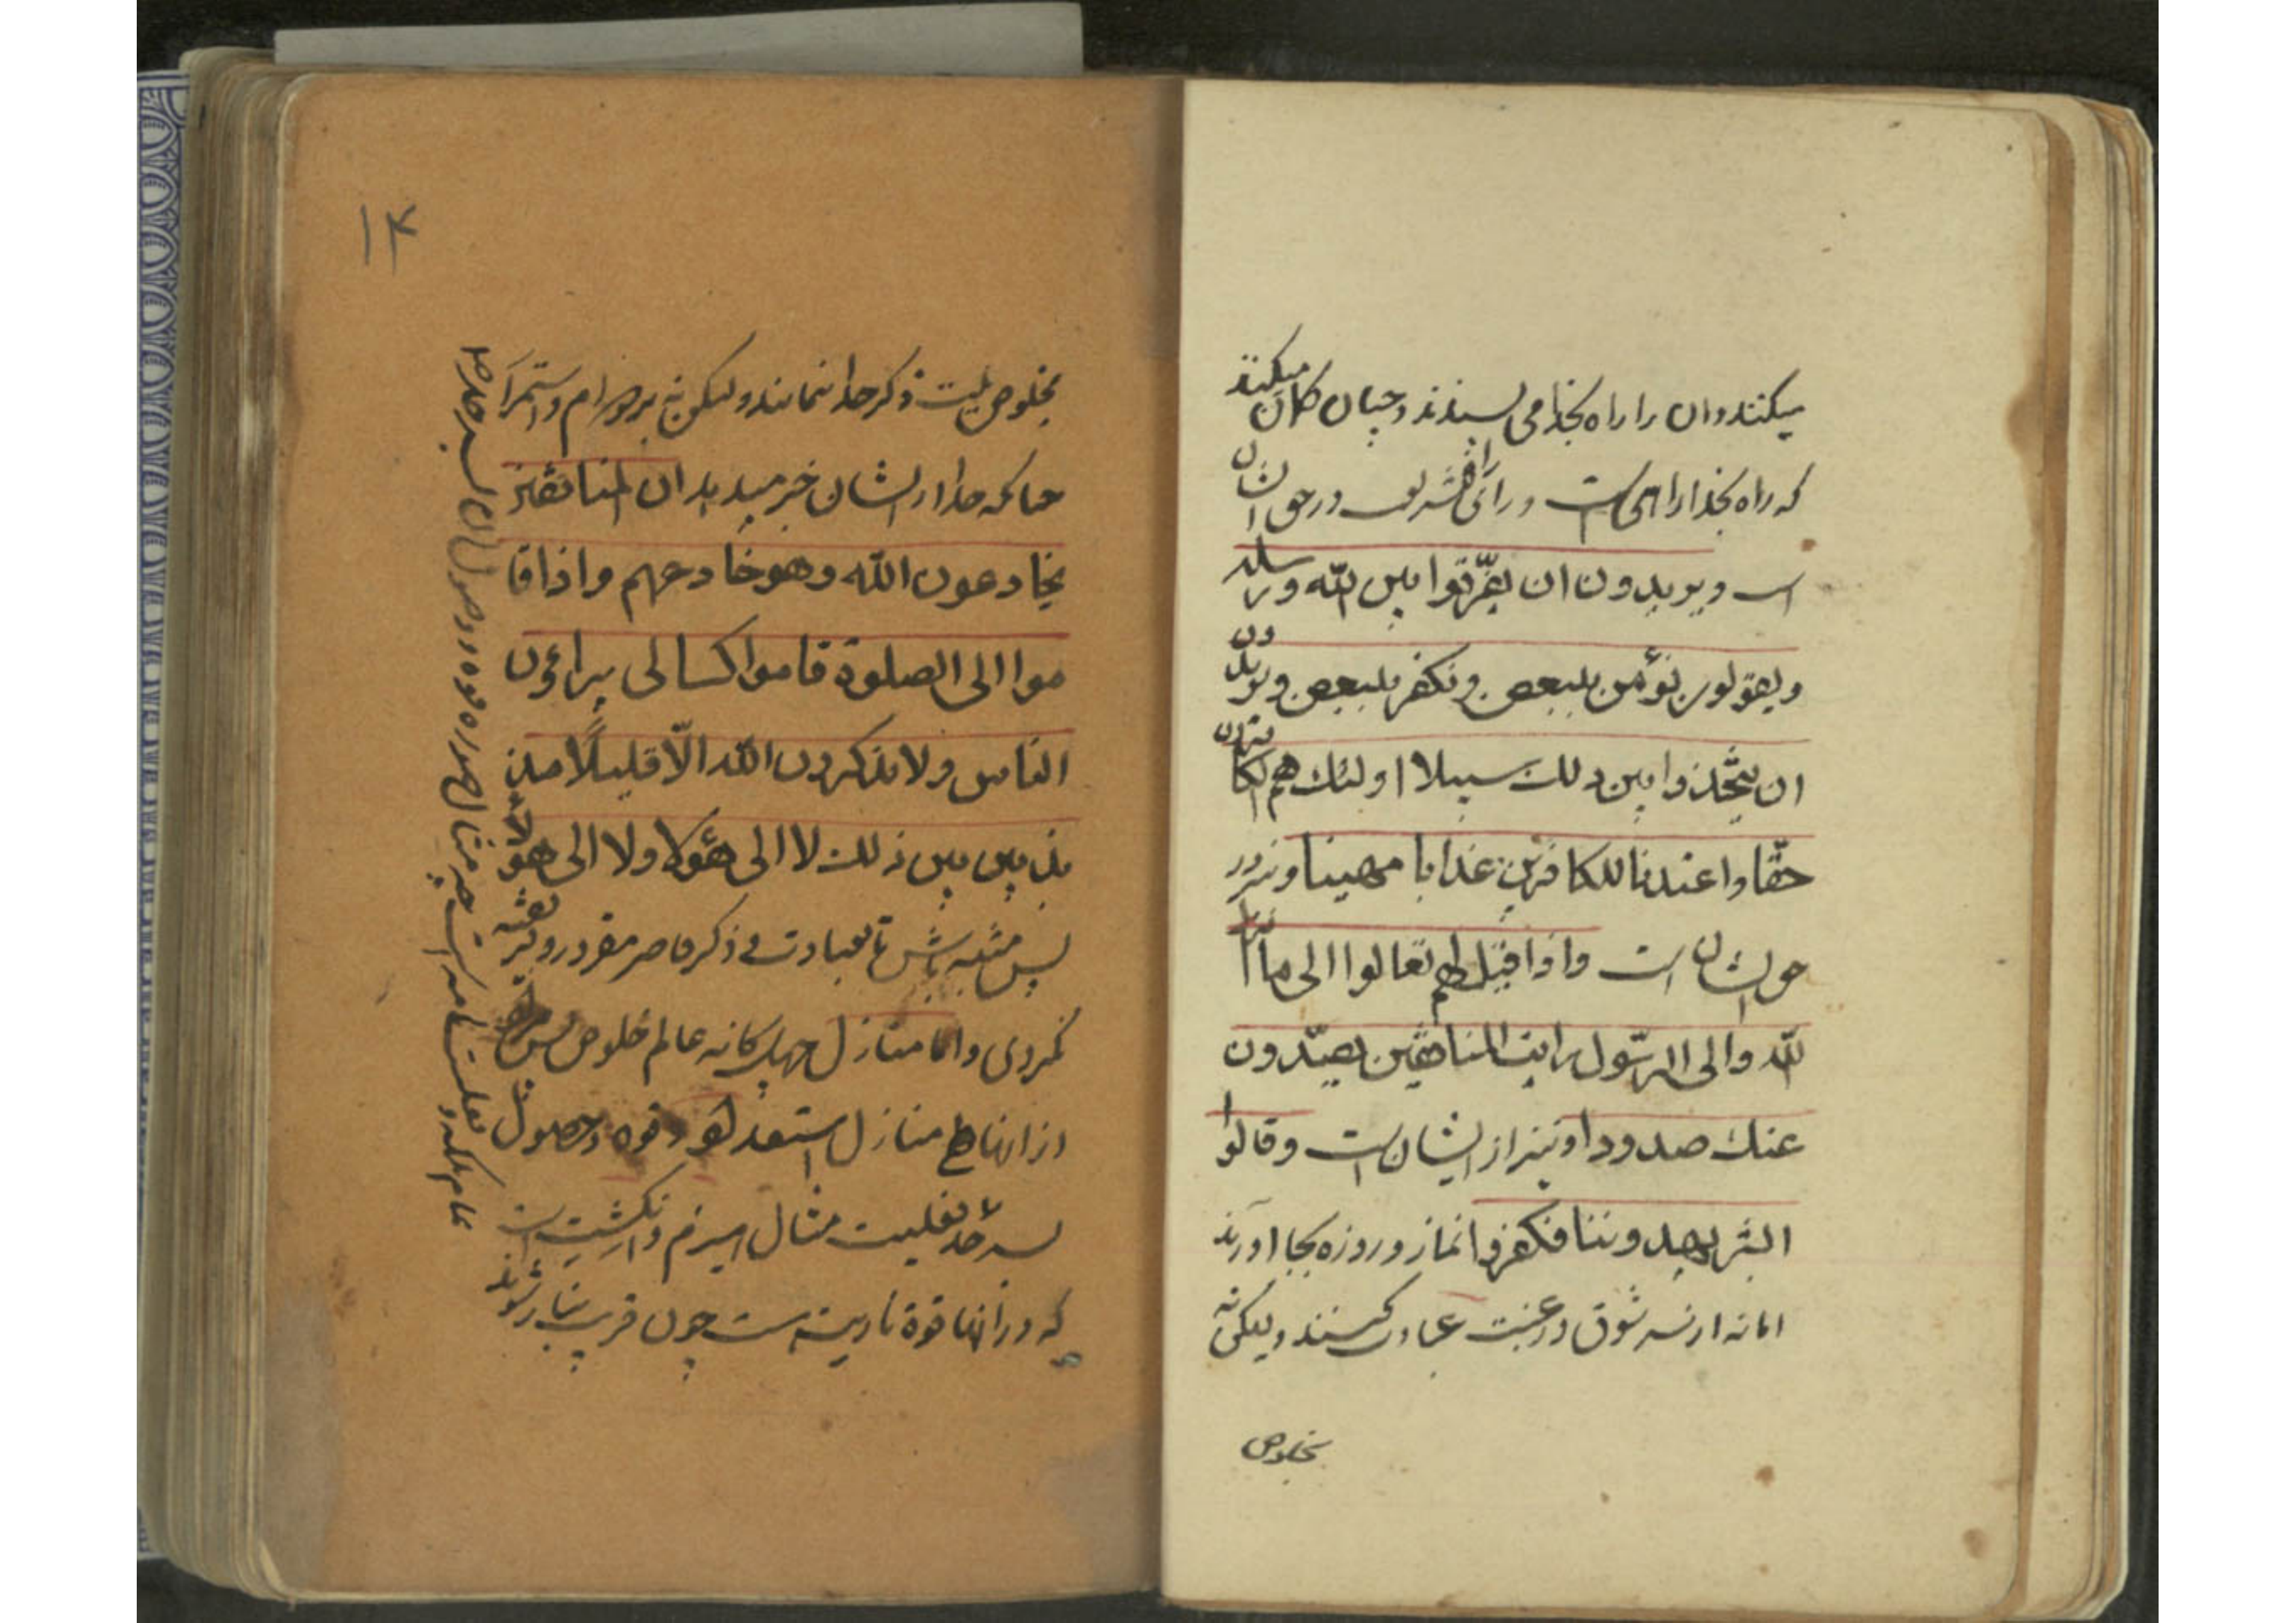 میکنند و ان را راه بخدا می پسندند و چنان کمان میکنند
که راه بخدا را هی است و رای شریف در حق ایشان
است ویریدون ان یفرّقوا بین الله ورسله
ویقولون نؤمن ببعض ونکفر ببعض ویریدون
ان یتّخذوا بین ذلك سبیلا اولئك هم الکافرون
حقّا واعتدنا للکافرین عذابا مهینا و نیز در
حق ایشان است واذا قیل لهم تعالوا الی ما انزل
الله والی الرّسول رایت المنافقین یصدّون
عنك صدودا و نیز از ایشان است وقالوا
ابشر یهدوننا فکفروا نماز و روزه بجا اورند
اما نه از سر شوق و رغبت عبادت کنند و لیکن نه
بخلوص
۱۴
بخلوص نیت ذکر خدا نمایند ولیکن نه بر دوام و استمرار
چنانکه خدا از ایشان خبر میدهد ان المنافقین
یخادعون الله وهو خادعهم واذا قا
موا الی الصلوة قاموا کسالی یراؤن
الناس ولا یذکرون الله الّا قلیلًا مذ
بذبین بین ذلك لا الی هؤلا ولا الی هؤلاء
پس متنبه باش تا بعبادت و ذکر قاصر مغرور و فریفته
نکردی و اما منازل چهل کانه عالم خلوص پس
از انها منازل استعداد و قوه و حصول
بسرحد فعلیت مثال هیزم و انکشت است
که در انها قوة ناریت است چون قریب بنار شوند